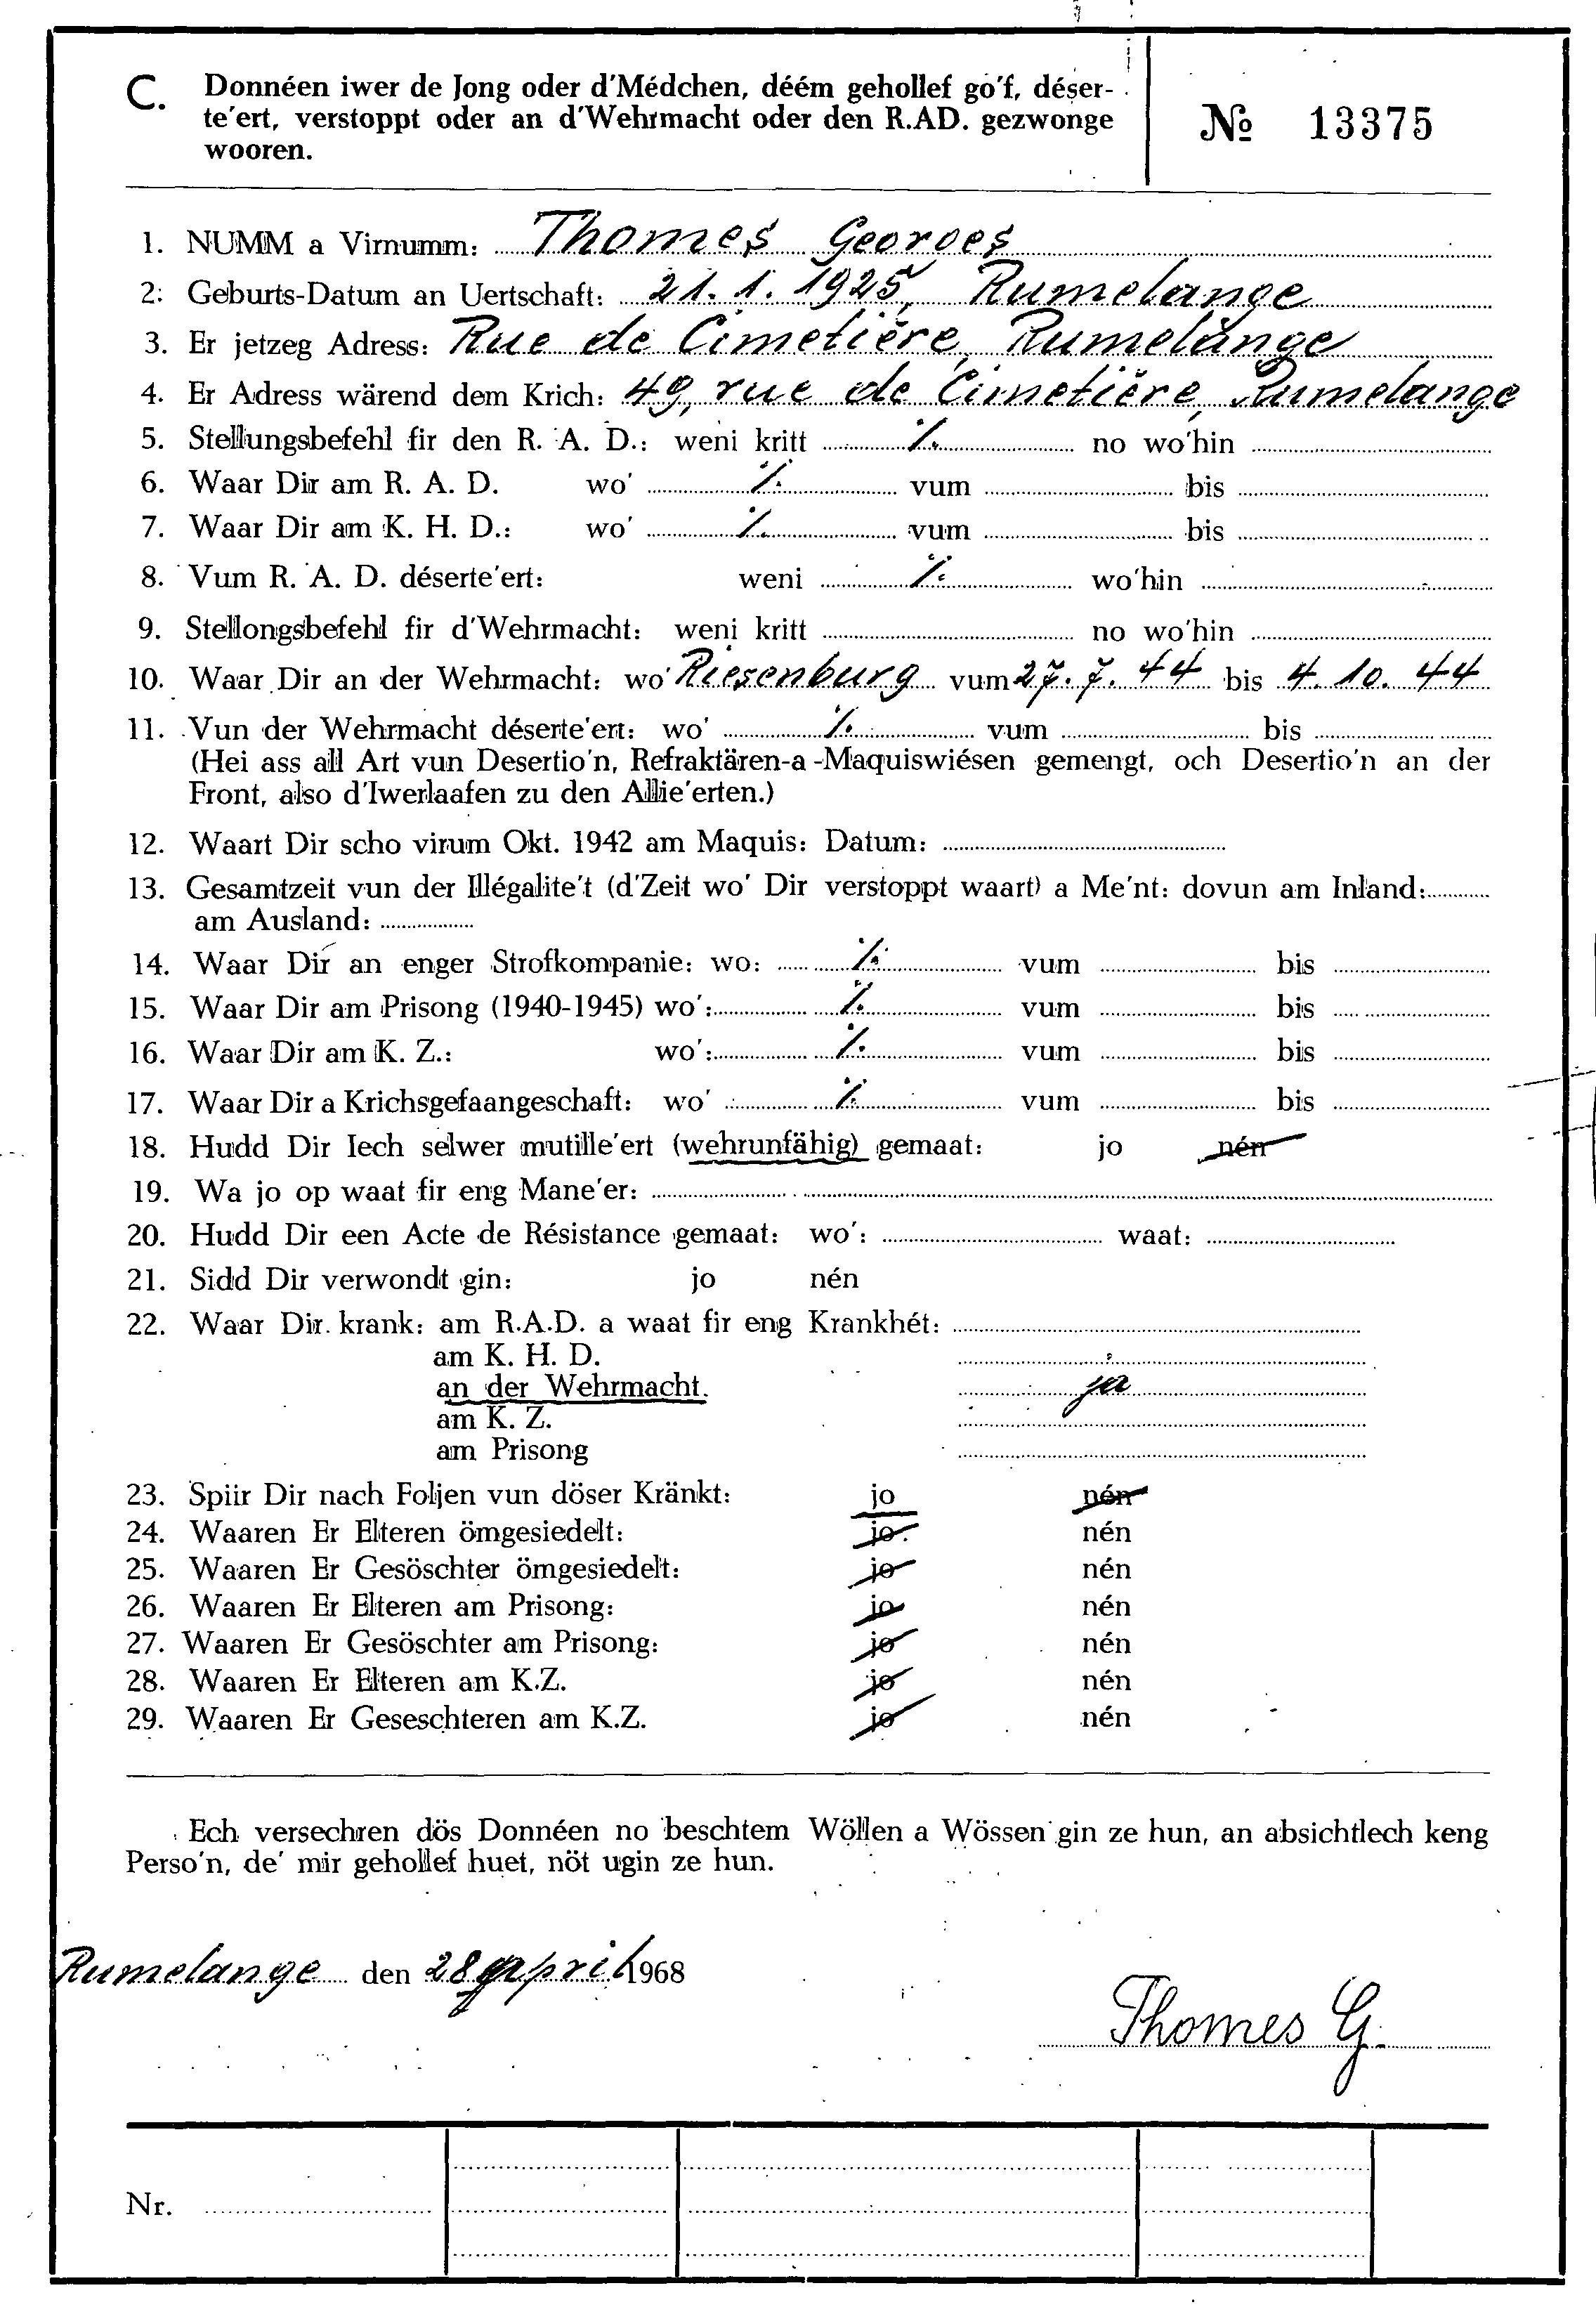 C. Donnéen iwer de Jong oder d'Médchen, déém gehollef go'f, déser-
te'ert, verstoppt oder an d'Wehrmacht oder den R.AD. gezwonge
wooren.
№ 13375
1. NUMM a Virnumm: Thomes Georges
2: Geburts-Datum an Uertschaft: 21. 1. 1925, Rumelange
3. Er jetzeg Adress: Rue de Cimetière, Rumelange
4. Er Adress wärend dem Krich: 49, rue de Cimetière, Rumelange
5. Stellungsbefehl fir den R. A. D.: weni kritt ./. no wo'hin
6. Waar Dir am R. A. D. wo' ./. vum bis
7. Waar Dir am K. H. D.: wo' ./. vum bis
8. Vum R. A. D. déserte'ert: weni ./. wo'hin
9. Stellongsbefehl fir d'Wehrmacht: weni kritt no wo'hin
10. Waar Dir an der Wehrmacht: wo' Riesenburg vum 27. 7. 44 bis 4. 10. 44
11. Vun der Wehrmacht déserte'ert: wo' ./. vum bis
(Hei ass all Art vun Desertio'n, Refraktären-a-Maquiswiésen gemengt, och Desertio'n an der
Front, also d'Iwerlaafen zu den Allie'erten.)
12. Waart Dir scho virum Okt. 1942 am Maquis: Datum:
13. Gesamtzeit vun der Illégalite't (d'Zeit wo' Dir verstoppt waart) a Me'nt: dovun am Inland:
am Ausland:
14. Waar Dir an enger Strofkompanie: wo: ./. vum bis
15. Waar Dir am Prisong (1940-1945) wo': ./. vum bis
16. Waar Dir am K. Z.: wo': ./. vum bis
17. Waar Dir a Krichsgefaangeschaft: wo' ./. vum bis
18. Hudd Dir Iech selwer mutille'ert (wehrunfähig) gemaat: jo nén
19. Wa jo op waat fir eng Mane'er:
20. Hudd Dir een Acte de Résistance gemaat: wo': waat:
21. Sidd Dir verwondt gin: jo nén
22. Waar Dir krank: am R.A.D. a waat fir eng Krankhét:
am K. H. D.
an der Wehrmacht. ja
am K. Z.
am Prisong
23. Spiir Dir nach Foljen vun döser Kränkt: jo nén
24. Waaren Er Elteren ömgesiedelt: jo. nén
25. Waaren Er Gesöschter ömgesiedelt: jo nén
26. Waaren Er Elteren am Prisong: jo nén
27. Waaren Er Gesöschter am Prisong: jo nén
28. Waaren Er Elteren am K.Z. jo nén
29. Waaren Er Geseschteren am K.Z. jo nén
Ech versechren dös Donnéen no beschtem Wöllen a Wössen gin ze hun, an absichtlech keng
Perso'n, de' mir gehollef huet, nöt ugin ze hun.
Rumelange den 28 April 1968
Thomes G.
Nr.